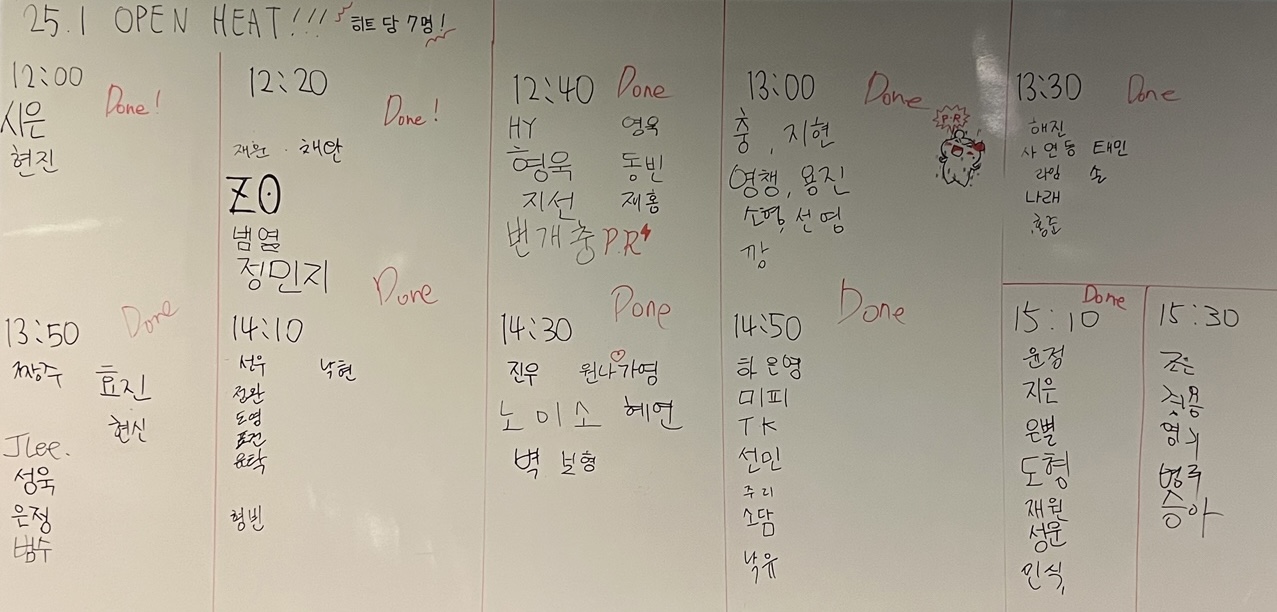 25.1 OPEN HEAT!!! 히트 당 7명!
12:00 Done!
시은
현진
12:20 Done!
재원 · 채안
ZO
범열
정민지
12:40 Done
HY 영욱
형욱 동빈
지선 재홍
번개충 P.R
13:00 Done
P.R
충, 지현
영챙, 용진
소형, 선영
깡
13:30 Done
해진
사 연동 태민
라임 솔
나래
홍돈
13:50 Done
짜장주 효진
현신
JLee.
성욱
은정
범수
14:10 Done
선우 낙현
정완
도영
표건
윤탁
형빈
14:30 Done
진우 원나가영
노이소 혜연
벽 보형
14:50 Done
하은영
미피
TK
선민
주리
소담
낙유
15:10 Done
윤정
지은
은별
도형
재원
성문
민식
15:30
병주
승아